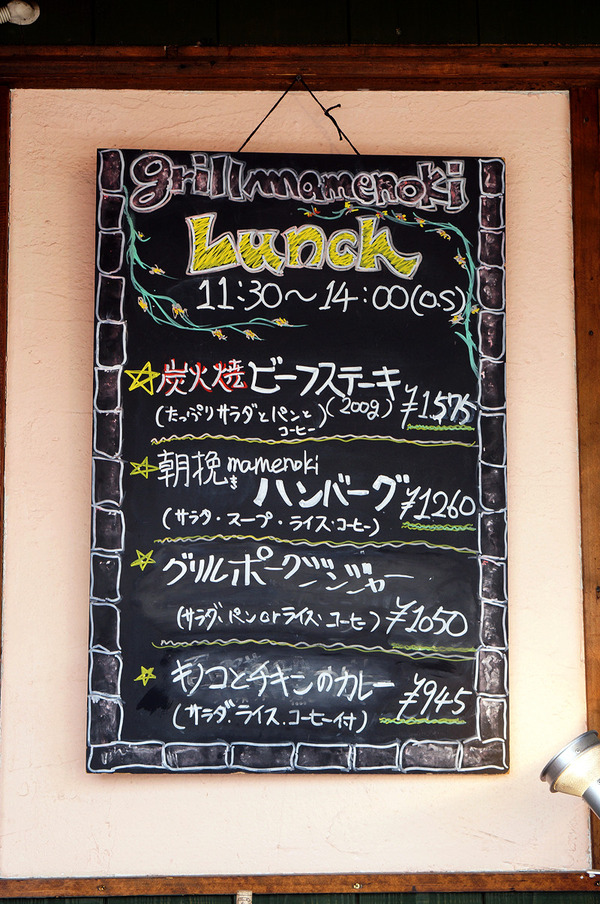 grill mamenoki
Lunch
11:30〜14:00(OS)
☆炭火焼ビーフステーキ
(たっぷりサラダとパンと
コーヒー)
(200g) ¥1,575
☆朝挽き mamenoki
ハンバーグ ¥1260
(サラダ・スープ・ライス・コーヒー)
☆グリルポークジンジャー
(サラダ、パンorライス・コーヒー) ¥1050
☆キノコとチキンのカレー ¥945
(サラダ、ライス、コーヒー付)